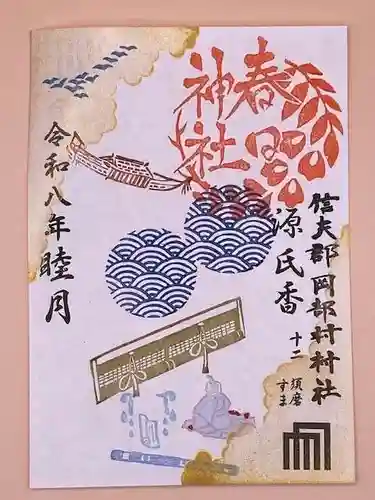 春日神社
信夫郡岡部村村社
源氏香
十二
須磨
すま
令和八年睦月